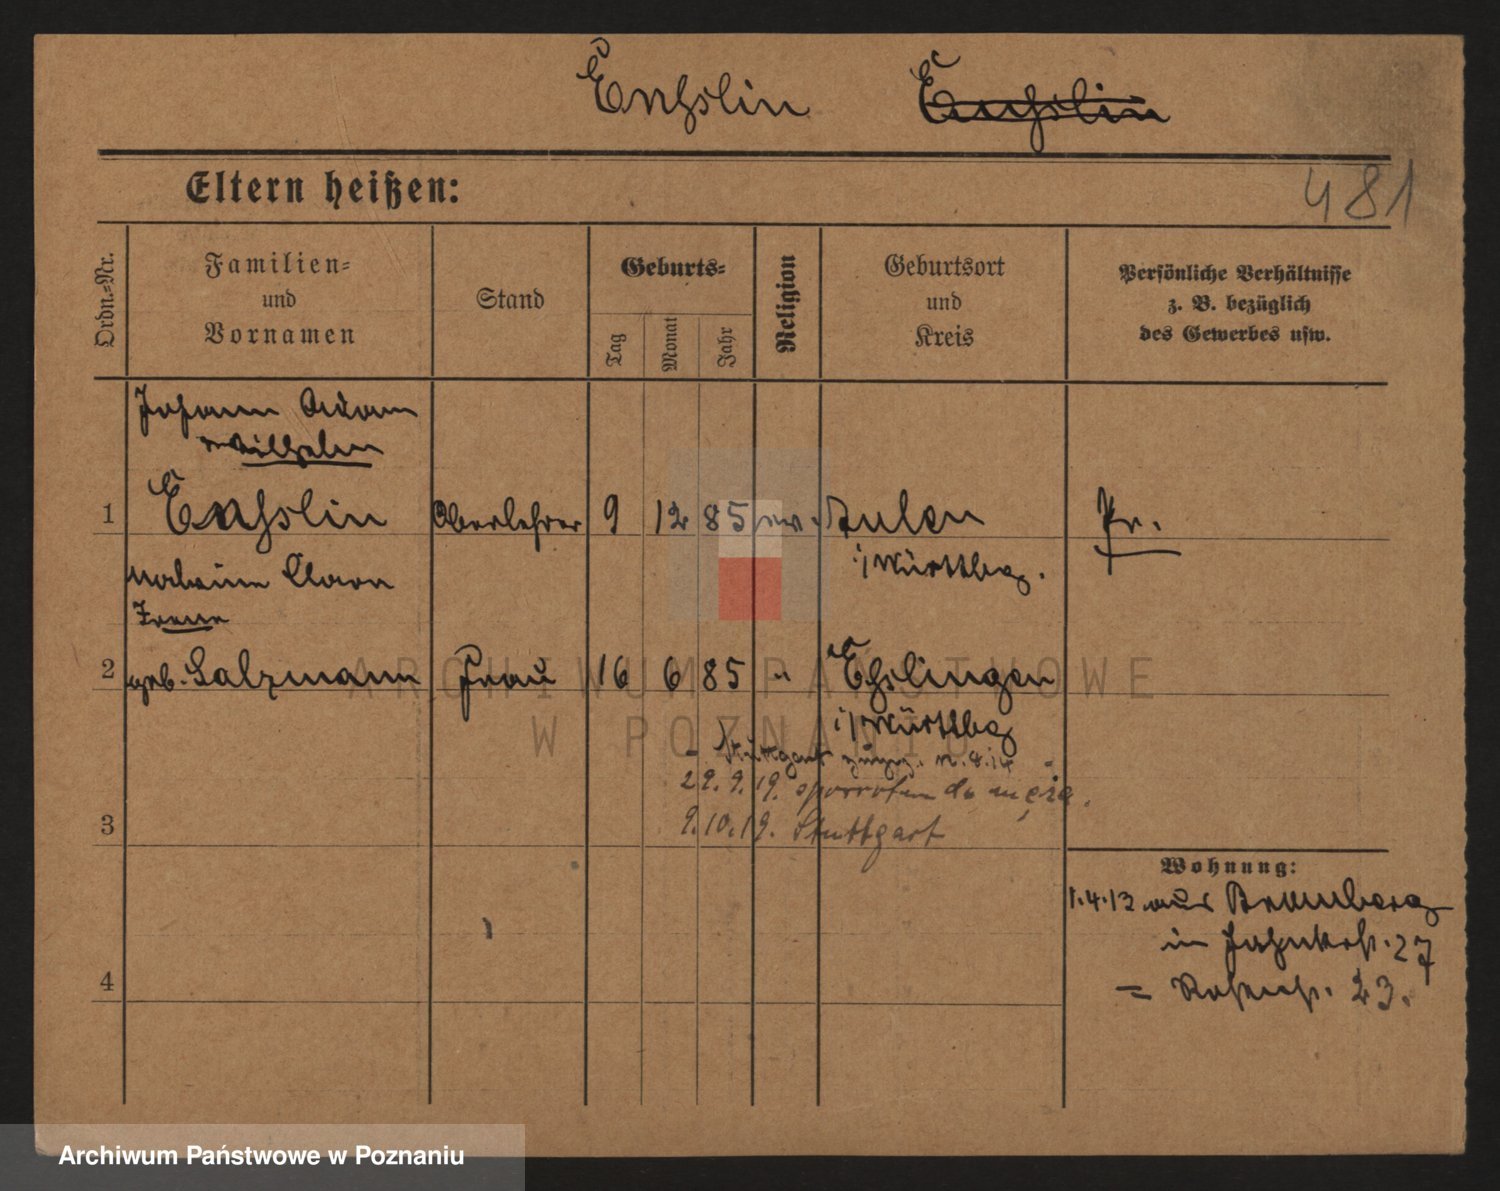 Enßlin Enßlin
Eltern heißen:
481
Ordn.=Nr.
Familien=
und
Vornamen
Stand
Geburts=
Tag
Monat
Jahr
Religion
Geburtsort
und
Kreis
Persönliche Verhältnisse
z. B. bezüglich
des Gewerbes usw.
Johann Adam
Wilhelm
1 Enßlin Oberlehrer 9 12 85 ev. Aalen Pr.
i/Württbg.
Clara
Irene
2 geb. Salzmann Frau 16 6 85 " Eßlingen
i/Württbg
Stuttgart
29. 9. 19.
3 9. 10. 19. Stuttgart
4
Wohnung:
1.4.13 aus Bromberg
in 27
= 23.
ARCHIWUM PAŃSTWOWE
W POZNANIU
Archiwum Państwowe w Poznaniu